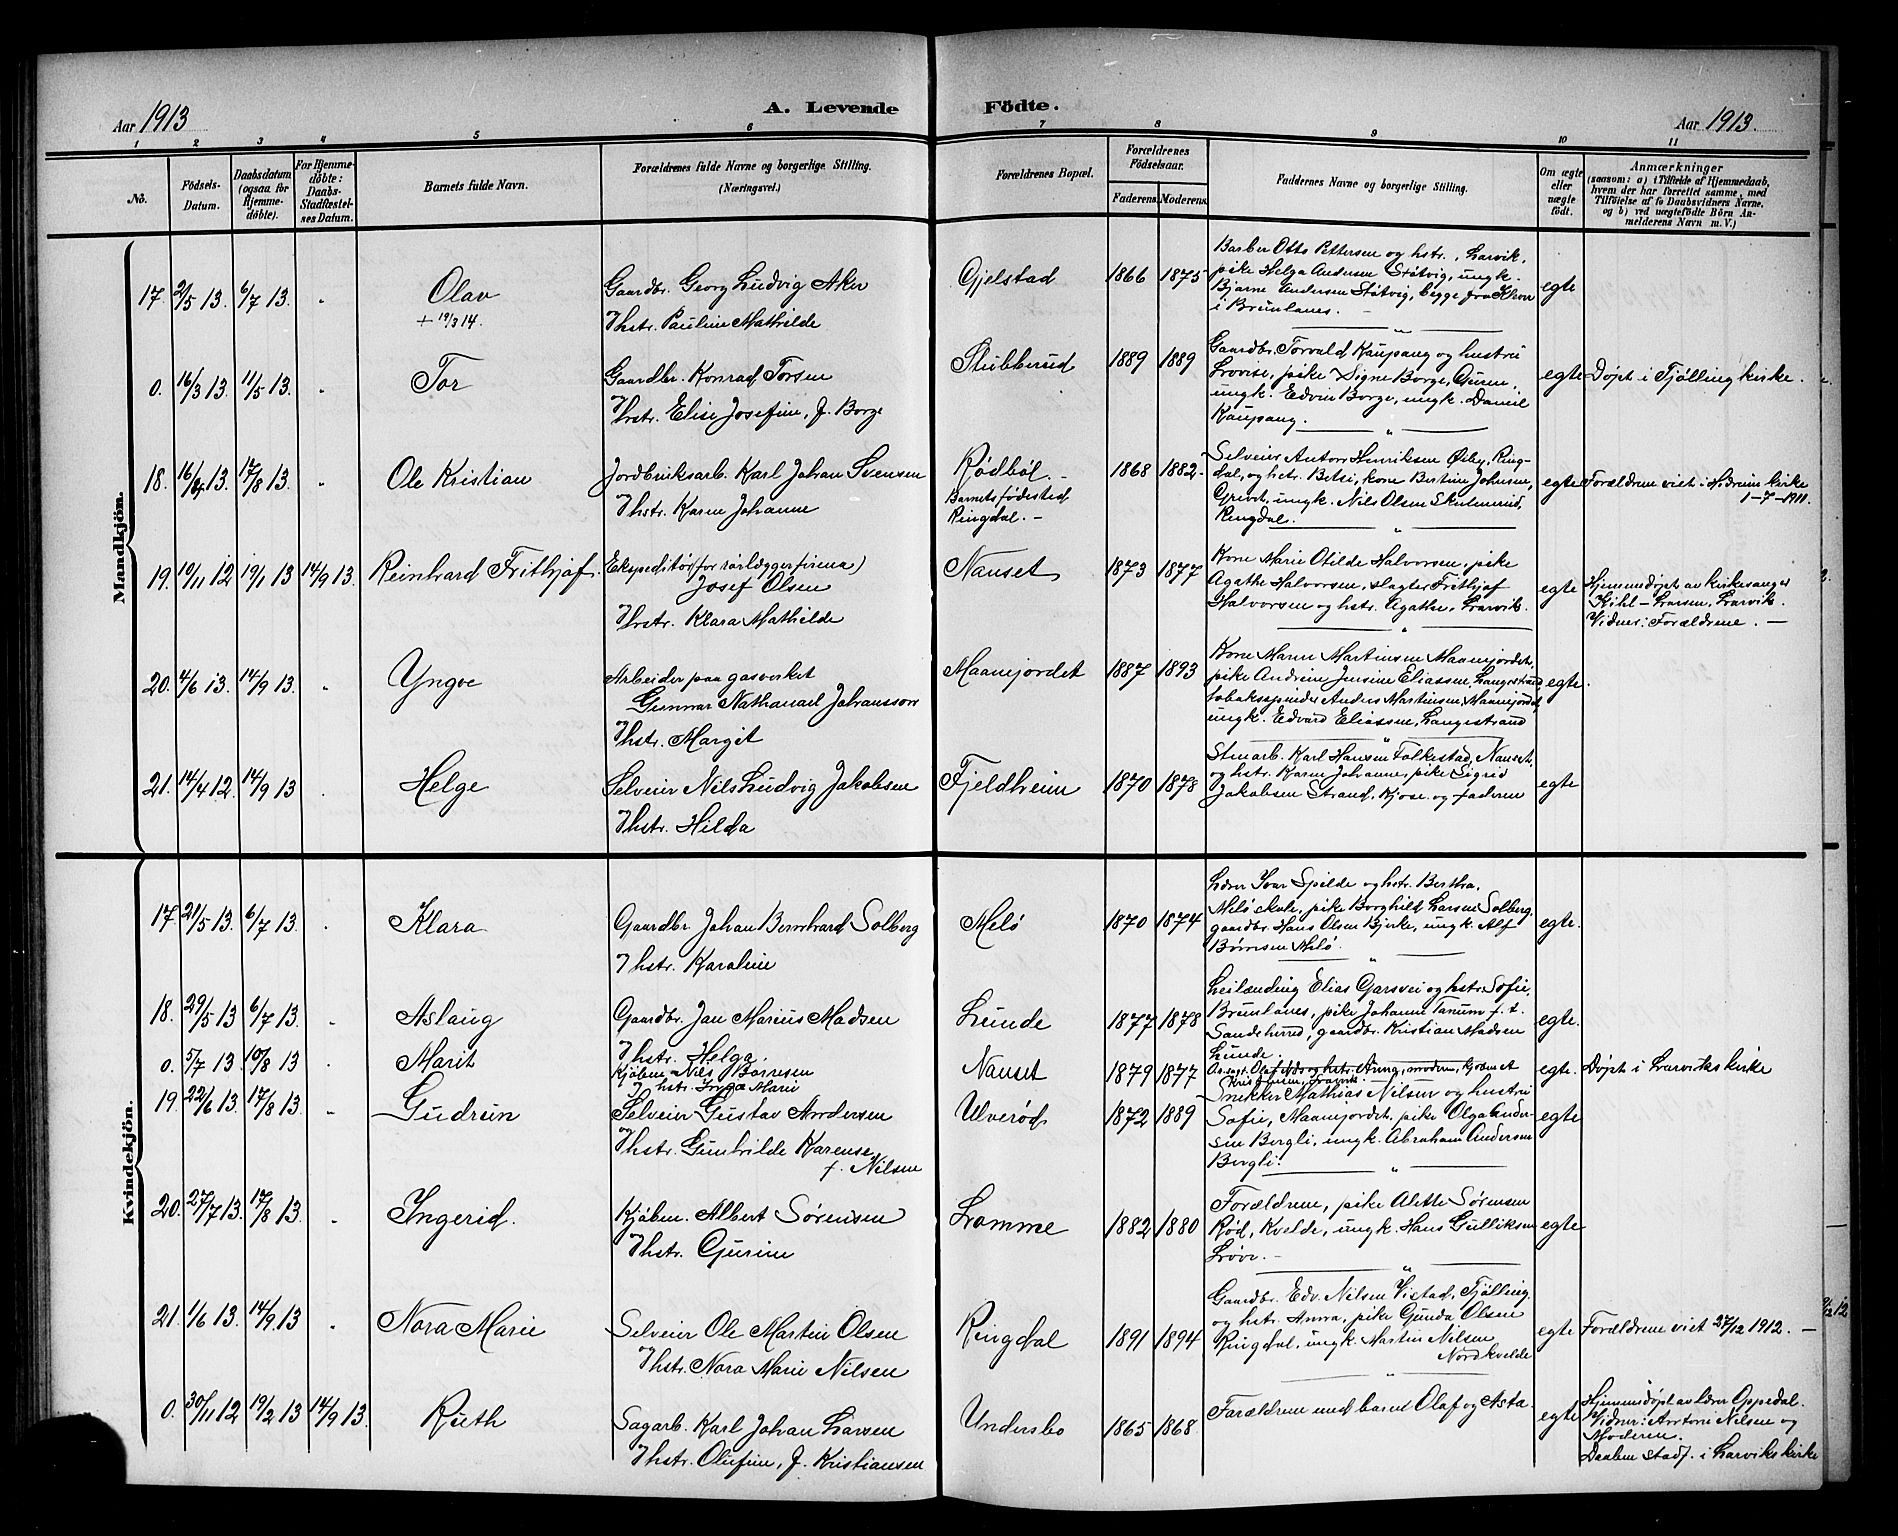 Aar 1913
A. Levende Födte.
Aar 1913.
1 2 3 4 5 6 7 8 9 10 11
No.
Födsels-Datum.
Daabsdatum (ogsaa for Hjemmedöbte).
For Hjemmedöbte: Daabs-Stadfæstelses Datum.
Barnets fulde Navn.
Forældrenes fulde Navne og borgerlige Stilling.
(Næringsvei.)
Forældrenes Bopæl.
Forældrenes Födselsaar.
Faderens. Moderens.
Faddernes Navne og borgerlige Stilling.
Om ægte eller uægte födt.
Anmærkninger
(saasom: a) i Tilfælde af Hjemmedaab, hvem der har forrettet samme, med Tilföielse af to Daabsvidners Navne, og b) ved uægtefödte Börn Anmelderens Navn m. V.)
Mandkjön.
17. 2/5 13. 6/7 13. " Olav
+ 19/3 14.
Gaardbr. Georg Ludvig Aker
Thstr. Pauline Mathilde
Gjelstad 1866 1875
Barber Otto Pettersen og hstr., Larvik,
pike Helga Andersen Støtvig, ungk.
Bjarne Andersen Støtvig, begge fra
i Brunlanes. –
egte
0. 16/3 13. 11/5 13. " Tor
Gaardbr. Konrad Torsen
Hstr. Elise Josefine, f. Borge
Stubberud 1889 1889
Gaardbr. Torvald Kaupang og hustru
Lovise, pike Signe Borge, Guren,
ungk. Edvin Borge, ungk. Daniel
Kaupang.
egte Døpt i Tjølling kirke.
18. 16/4 13. 17/8 13. " Ole Kristian
Jordbruksarb. Karl Johan Svensen
Thstr. Karen Johanne
Rødbøl. –
Barnets fødested
Ringdal. –
1868 1882
Selveier Anton Henriksen Østby, Ring-
dal, og hstr. Betsi, kone Bertine Johnsen,
ungk. Nils Olsen
Ringdal.
egte Forældrene viet i Hedrum kirke
1-7-1911.
19. 10/11 12 19/1 13 14/9 13. Reinhard Frithjof.
Ekspeditør (for rørlæggerfirma)
Josef Olsen
Hstr. Klara Mathilde
Nanset 1873 1877
Kone Marie Otilde Halvorsen, pike
Agathe Halvorsen, slagter Frithjof
Halvorsen og hstr. Agathe, Larvik.
egte
Hjemmedøpt av kirkesanger
Kihl-Larsen, Larvik.
Vidner: Forældrene. –
20. 4/6 13. 14/9 13. " Yngve
Arbeider paa gasverket
Gunnar Nathanael Johansson
Thstr. Margit
Maanejordet 1887 1893
Kone Maren Martinsen Maanejordet,
pike Andrine Jensine Eliassen, Langestrand,
tobaksspinder Anders Martinsen, Maanejordet,
ungk. Edvard Eliassen, Langestrand
egte.
21. 14/4 12. 14/9 13 . Helge
Selveier Nils Ludvig Jakobsen
Thstr. Hilda
Fjeldheim 1870 1878
Stenarb. Karl Hansen Falkestad, Nanset,
og hstr. Karen Johanne, pike Sigrid
Jakobsen Strand, Kjose og faderen
egte
Kvindekjön.
17. 21/5 13. 6/7 13. . Klara
Gaardbr. Johan Bernhard Solberg
Thstr. Karoline
Melø 1870 1874
Lærer Ivar Spilde og hstr. Berthea,
Melø skole, pike Borghild Larsen Solberg,
gaardbr. Hans Olsen Bjerke, ungk. Alf
Børresen Melø.
egte.
18. 29/5 13 6/7 13. . Aslaug
Gaardbr. Jan Marius Madsen
Thstr. Helga.
Lunde 1877 1878
Leilænding Elias Garsvei og hstr. Sofie,
Brunlanes, pike Johanne Tanum f. t.
Sandeherred, gaardbr. Kristian Madsen
Lunde.
egte.
0. 5/7 13. 10/8 13 . Marit
Kjøbm. Nils Børresen
Thstr. Inga Marie
Nanset 1879 1877
egte. Døpt i Larviks kirke
19 22/6 13. 17/8 13. " Gudrun
Selveier Gustav Andersen
og
Thstr. Gunhilde Karense,
f. Nilsen
Ulverød 1872 1889
Snekker Mathias Nilsen og hustru
Sofie, Maanejordet, pike Olga Ander-
sen Bergli, ungk. Abraham Andersen
Bergli.
egte
20. 27/7 13. 17/8 13. . Ingerid.
Kjøbm. Albert Sørensen
Thstr. Gurine
Lamme 1882 1880
Forældrene, pike Alette Sørensen
Rød, Kvelde, ungk. Hans Gulliksen
Løve. –
egte
21. 1/6 13. 14/9 13 " Nora Marie
Selveier Ole Martin Olsen
og
Thstr. Nora Marie Nilsen
Ringdal 1891 1894
Gaardbr. Edv. Nilsen Vistad, Tjølling,
og hstr. Anna, pike Gunda Olsen
Ringdal, ungk. Martin Nilsen
Nordkvelde
egte Forældrene viet 27/12 1912. –
0. 30/11 12 19/2 13 14/9 13. Ruth
Sagarb. Karl Johan Larsen
Thstr. Olufine, f. Kristiansen
Undersbo 1865 1868.
Forældrene med barnet Olaf og Asta.
egte
Hjemmedøpt av lærer Oppedal.
Vidner: Antoni Nilsen og
Moderen.
Daaben stadf. i Larviks kirke